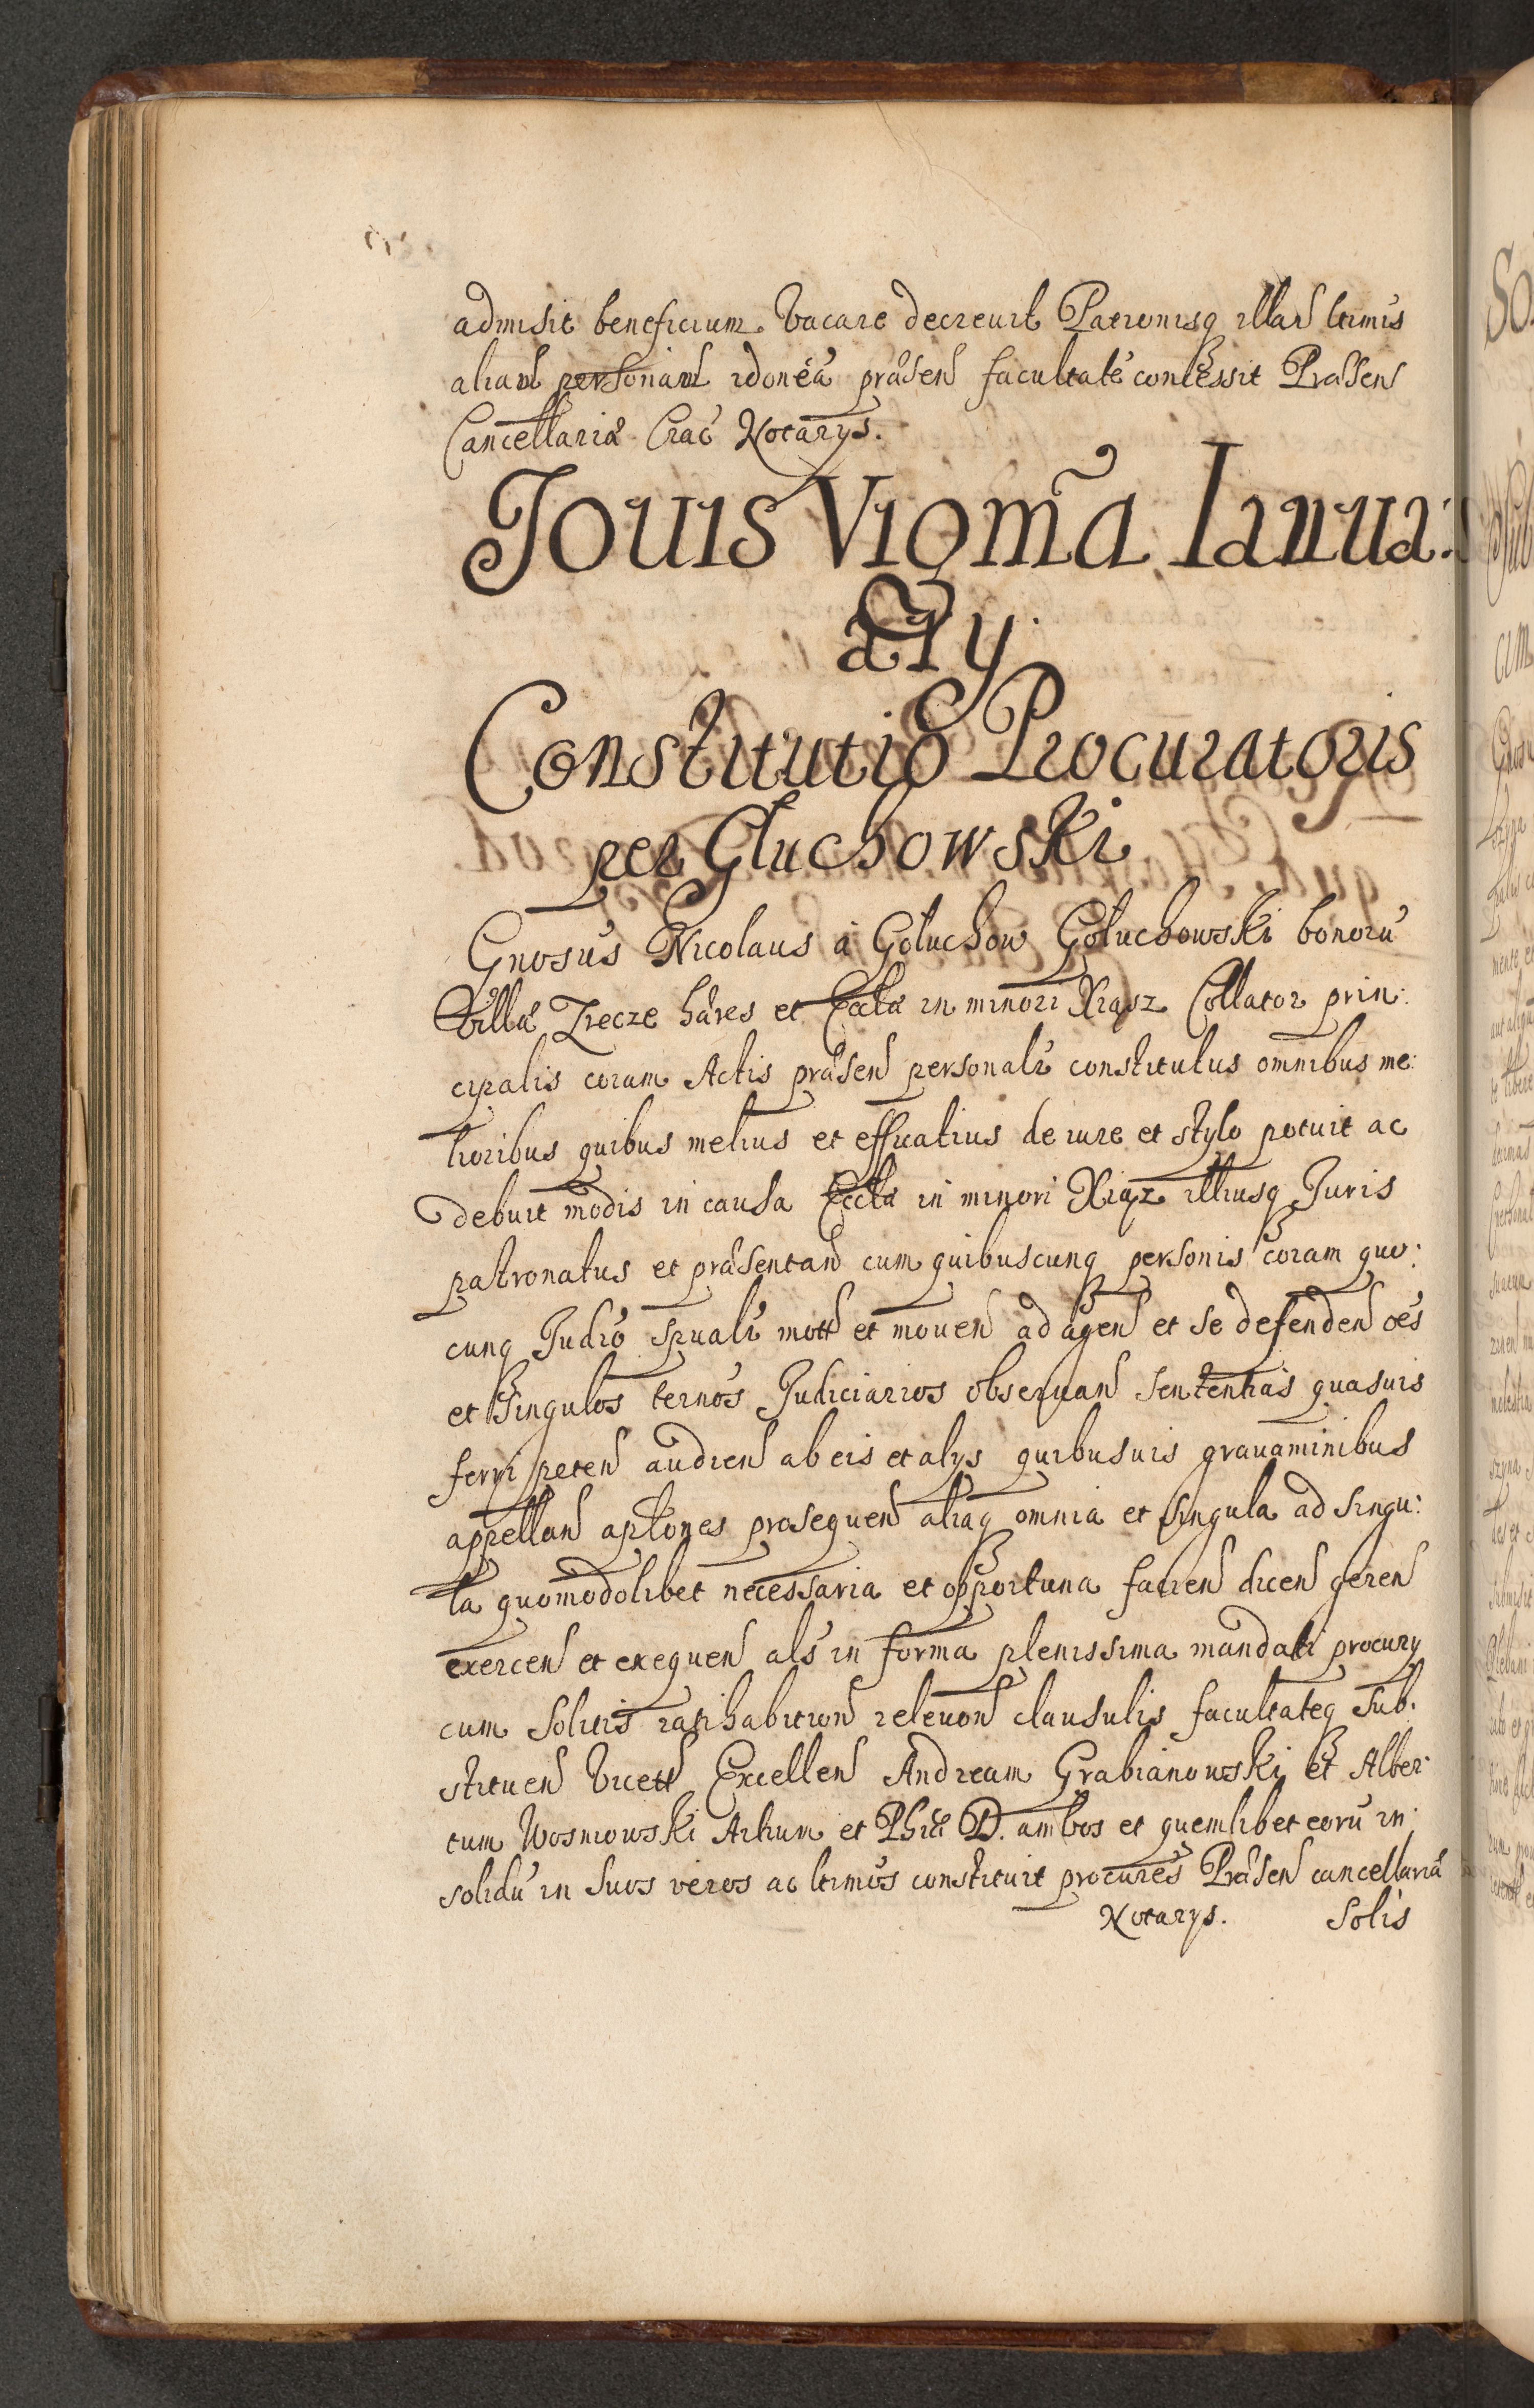 admisit beneficium Vacare decreuit Patronisq illań ltimis
aliam personam idoneá præsen facultaté concessit Præsen
Cancellariæ Crać Notarys.
Jouis Vigma Ianua:
ary
Constitutio Procuratoris
per Gluchowski
Gnosus Nicolaus à Gołuchow Gołuchowski bonorú
Villæ Zrecze hæres et Eccła in minori Xiąsz Collator prin:
cipalis coram Actis præsen personalr constitutus omnibus me:
lioribus quibus melius et efficatius de iure et stylo potuit ac
debuit modis in causa Eccła in minori Xiąz illiusq Juris
patronatus et præsentan cum quibuscunq personis coram quo:
cunq Judió spualr mott et mouen ad agen et se defenden oés
et singulos ternós Judiciarios obseruan sententias quasuis
ferri peten audien ab eis et alys quibusuis grauaminibus
appellan aplones prosequen aliaq omnia et singula ad singu:
la quomodolibet necessaria et opportuna facien dicen geren
exercen et exequen als in forma plenissima mandati procury
cum solitis ratihabition releuon clausulis facultateq sub:
stituen Vicett Excellen Andream Grabianowski et Alber:
tum Wosniowski Artium et Phiæ D. ambos et quemlibet eorú in:
solidú in suos veros ac ltimós constituit procurés Præsen cancellariæ
Notarys. Solis